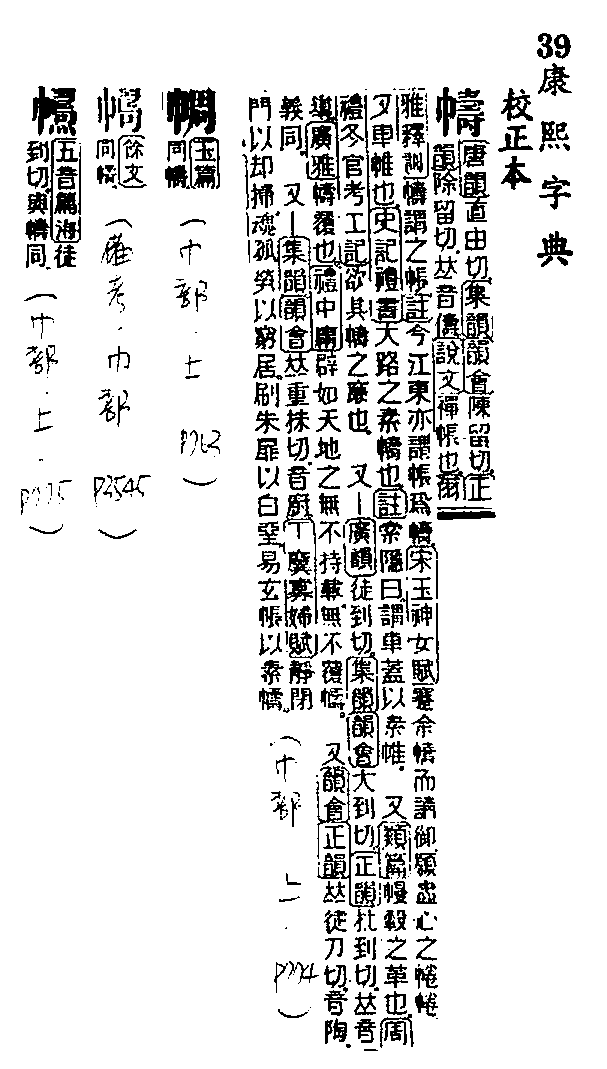 39 康熙字典
校正本
幬 唐韻直由切集韻韻會陳留切正
韻除留切𠀤音儔說文禪帳也爾
雅釋訓幬謂之帳註今江東亦謂帳爲幬宋玉神女賦褰余幬而請御願盡心之惓惓
又車帷也史記禮書大路之素幬也註索隱曰謂車蓋以素帷 又類篇幔轂之革也周
禮冬官考工記欲其幬之廉也 又丨廣韻徒到切集韻韻會大到切正韻杜到切𠀤音
導廣雅幬覆也禮中庸辟如天地之無不持載無不覆幬 又韻會正韻𠀤徒刀切音陶
義同 又丨集韻韻會𠀤重株切音廚丁廙寡婦賦靜閉
門以却掃魂孤煢以窮居刷朱扉以白堊易玄帳以素幬
(巾部.上.P224)
幮 玉篇
同幬
(巾部.上
)
㡞 餘文
同幬
(雁考.巾部
P3545)
五音篇海徒
到切與幬同
(巾部.上.
P225)